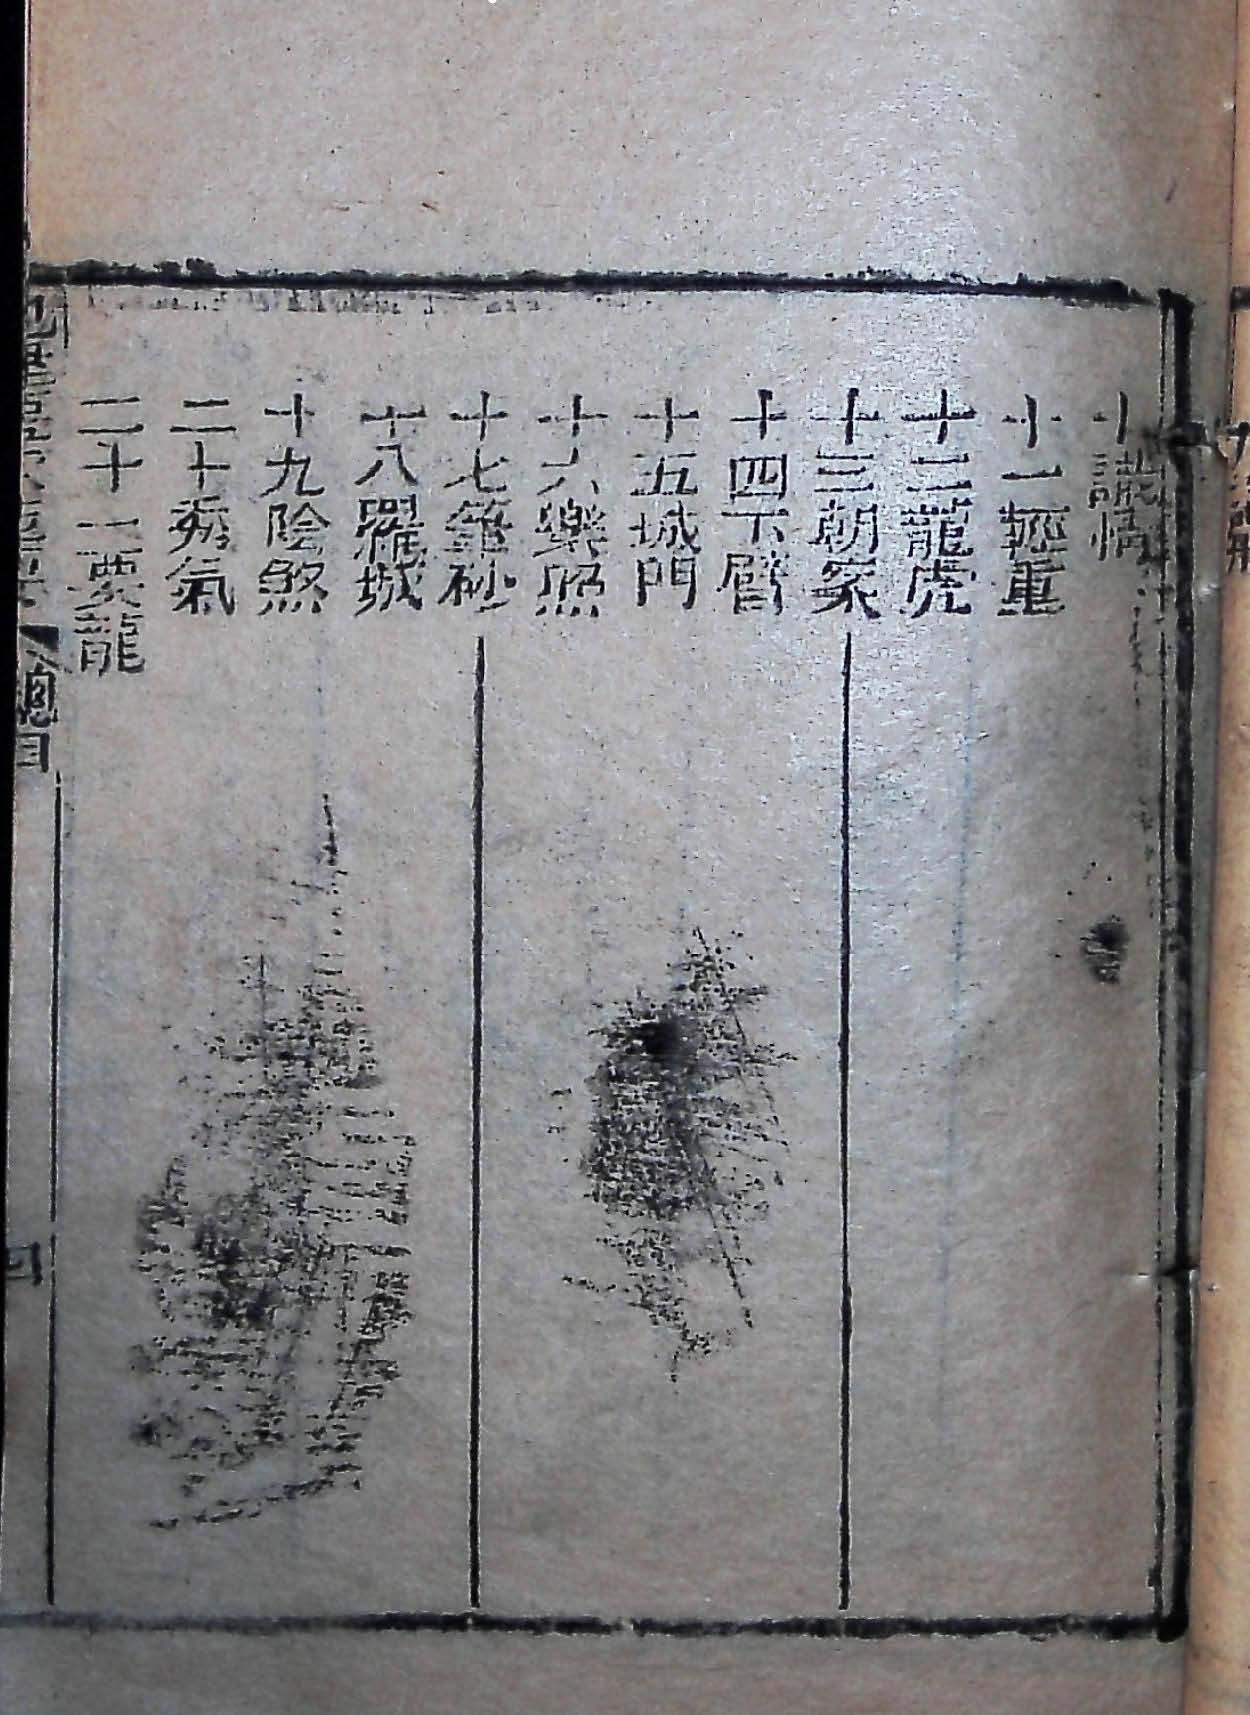 十
十一輕重
十二龍虎
十三朝案
十四下臂
十五城門
十六樂照
十七
十八羅城
十九陰煞
二十 氣
二十一要龍
總目
四